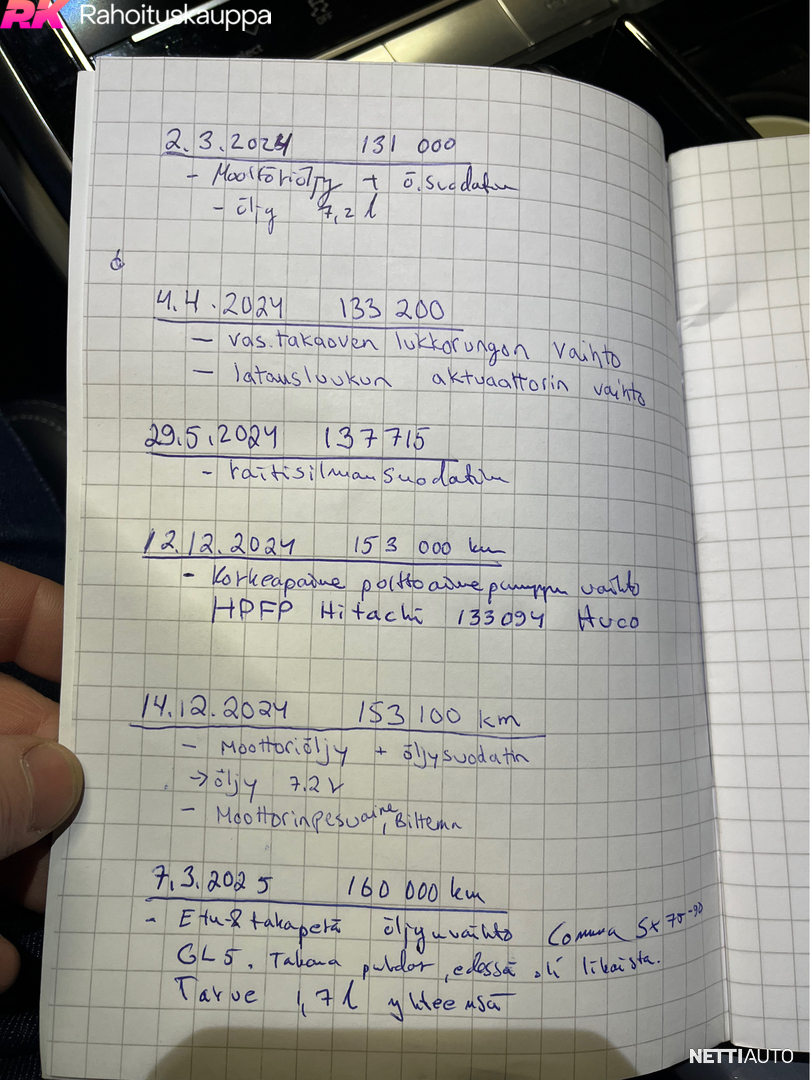 RK Rahoituskauppa
2.3.2024 131 000
- Moottoriöljy + ö.suodatin
- öljy 7,2 l
ö
4.4.2024 133 200
- vas.takaoven lukkorungon vaihto
- latausluukun aktuaattorin vaihto
29.5.2024 137715
- raitisilmansuodatin
12.12.2024 153 000 km
- Korkeapaine polttoainepumppu vaihto
HPFP Hitachi 133094 Huco
14.12.2024 153 100 km
- Moottoriöljy + öljysuodatin
→ öljy 7.2 l
- Moottorinpesuaine, Biltema
7.3.2025 160 000 km
- Etu & takaperä öljynvaihto Comma SX 75-90
GL5. Takana puhdas, edessä oli likaista.
Tarve 1,7 l yhteensä
NETTIAUTO